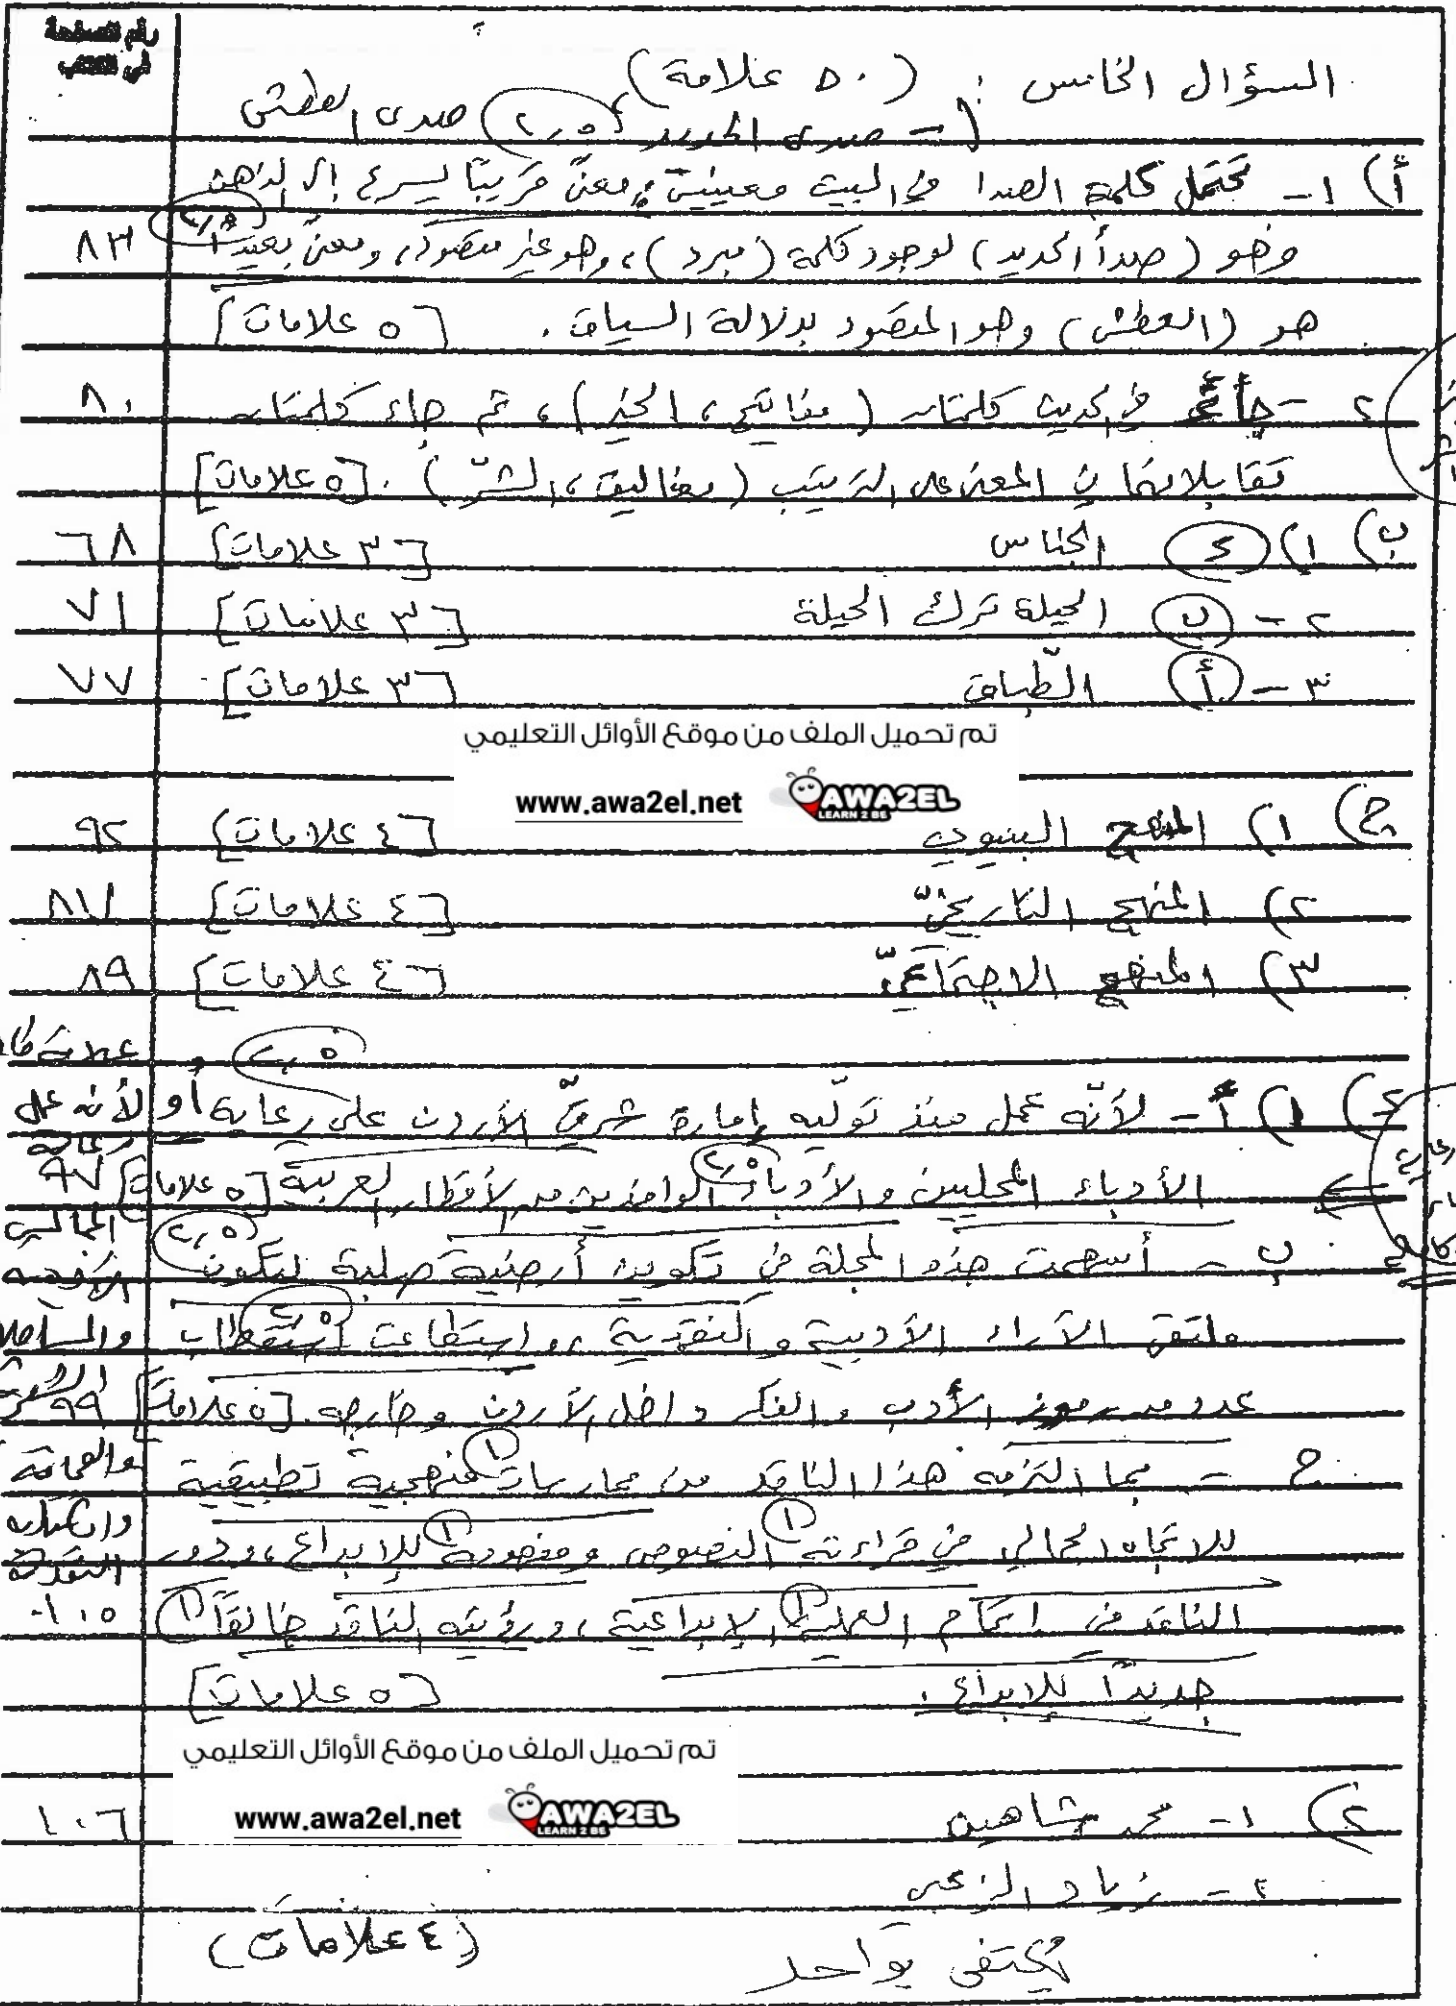 رقم الصفحة
في الكتاب
السؤال الخامس : (٥٠ علامة)
١- صدى الحديد ٢٫٥ ، صدى العطش
أ) ١- تحتمل كلمة الصدا في البيت معنيين، معنىً قريبًا يسرع إلى الذهن
وهو (صدأ الحديد) لوجود كلمة (مبرد)، وهو غير مقصود، ومعنىً بعيدًا ٢٫٥ ٨٣
هو (العطش) وهو المقصود بدلالة السياق. [٥ علامات]
٢- جاءَ في الحديث كلمتان (مفاتيح، الخير)، ثم جاء كلمتان ٨٠
تقابلانهما في المعنى على الترتيب (مغاليق، الشرّ). [٥ علامات]
ب) ١) د الجناس [٣ علامات] ٦٨
٢- ب الحيلة ترك الحيلة [٣ علامات] ٧١
٣- أ الطّباق [٣ علامات] ٧٧
تم تحميل الملف من موقع الأوائل التعليمي
www.awa2el.net AWA2EL
LEARN 2 BE
ج) ١) المنهج البنيوي [٤ علامات] ٩٢
٢) المنهج التاريخيّ [٤ علامات] ٨٧
٣) المنهج الاجتماعيّ [٤ علامات] ٨٩
٢٫٥ علامة
د) ١) أ- لأنّه عمل منذ توليه إمارة شرقيّ الأردن على رعاية أو لأنه عمل
رعاية
الأدباء المحليين والأدباء ٢٫٥ الوافدين من الأقطار العربية [٥ علامات] ٩٧
المجالس
ب- أسهمت هذه المجلة في تكوين أرضية صلبة لتكون ٢٫٥ الأدبية
ملتقى الآراء الأدبية والنقدية، واستطاعت ٢٫٥ استقطاب
عدد من رموز الأدب والفكر داخل الأردن وخارجه. [٥ علامات] ٩٩
ج- بما التزمه هذا الناقد من ممارسات ١ منهجية تطبيقية
للاتجاه الجمالي في قراءته ١ النصوص ومقصودة ١ للإبداع، ودور
الناقد في إتمام العملية ١ الإبداعية، ورؤيته الناقد خالقًا ١ ١٠٥
جديدًا للإبداع. [٥ علامات]
تم تحميل الملف من موقع الأوائل التعليمي
www.awa2el.net AWA2EL
LEARN 2 BE
٢) ١- محمد شاهين ١٠٦
٢- زياد الزعبي
يُكتفى بواحد (٤ علامات)